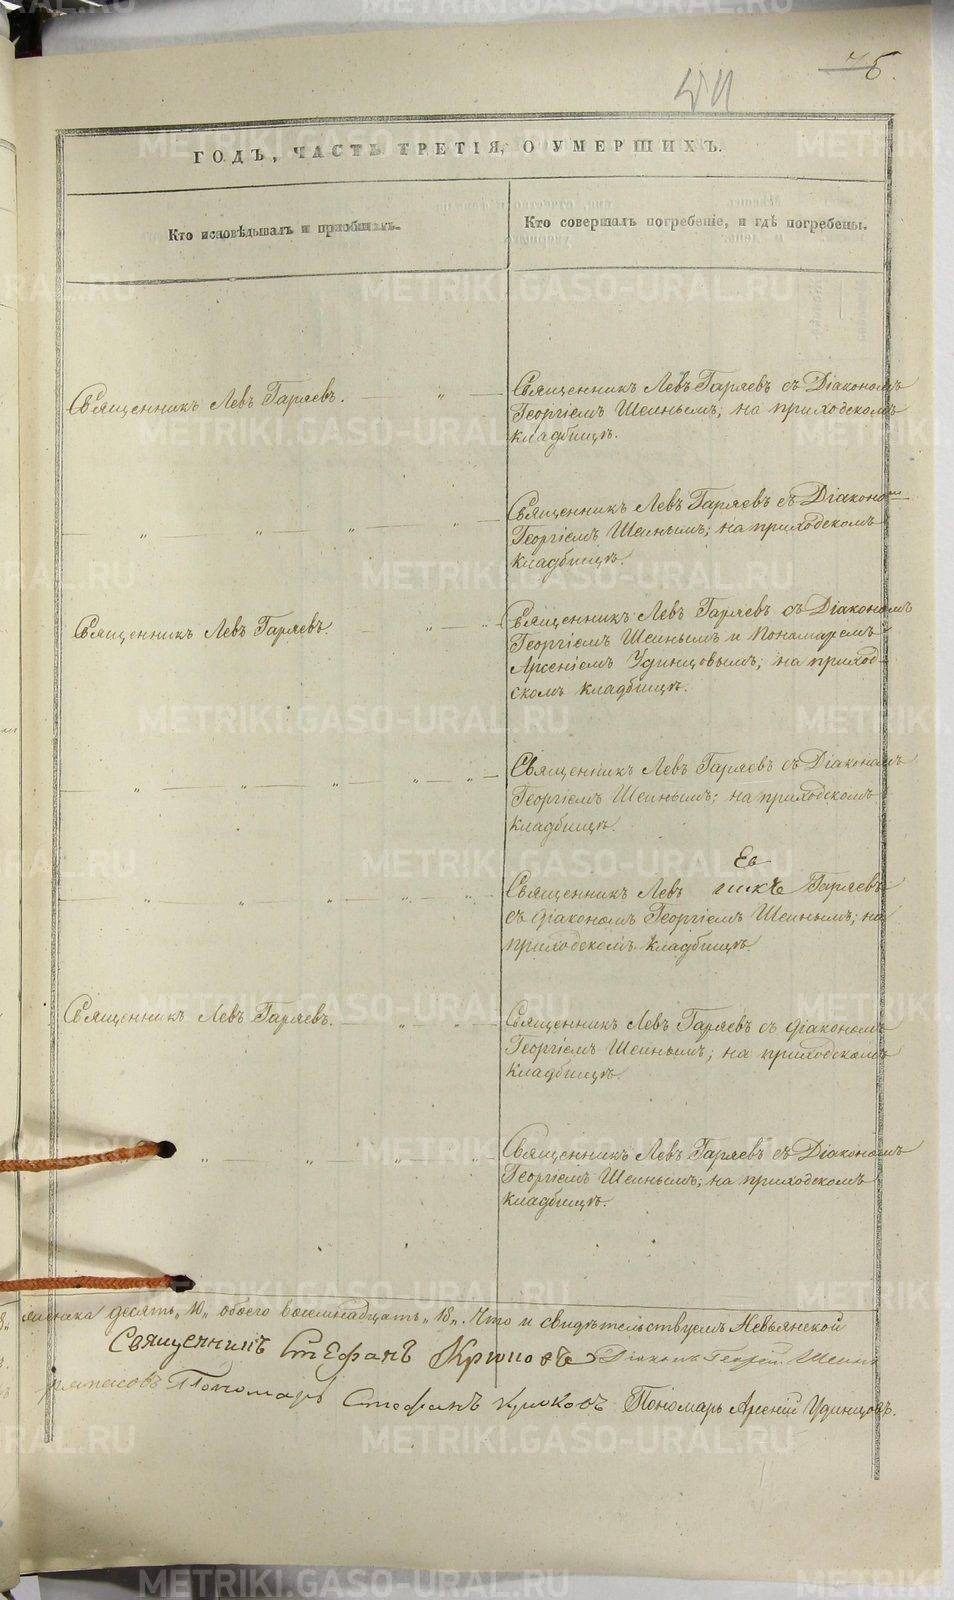 ГОДЪ, ЧАСТЬ ТРЕТІЯ, О УМЕРШИХЪ.
Кто исповѣдывалъ и пріобщалъ.
Кто совершалъ погребеніе, и гдѣ погребены.
Священникъ Левъ Гаряевъ.
Священникъ Левъ Гаряевъ съ Діакономъ
Георгіемъ Шеинымъ; на приходскомъ
кладбищѣ.
Священникъ Левъ Гаряевъ съ Діакономъ
Георгіемъ Шеинымъ; на приходскомъ
кладбищѣ.
Священникъ Левъ Гаряевъ.
Священникъ Левъ Гаряевъ съ Діакономъ
Георгіемъ Шеинымъ и Пономаремъ
Арсеніемъ Удинцовымъ; на приход-
скомъ кладбищѣ.
Священникъ Левъ Гаряевъ съ Діакономъ
Георгіемъ Шеинымъ; на приходскомъ
кладбищѣ.
Священникъ Левъ Гаряевъ
съ діакономъ Георгіемъ Шеинымъ; на
приходскомъ кладбищѣ.
Священникъ Левъ Гаряевъ.
Священникъ Левъ Гаряевъ съ діакономъ
Георгіемъ Шеинымъ; на приходскомъ
кладбищѣ.
Священникъ Левъ Гаряевъ съ Діакономъ
Георгіемъ Шеинымъ; на приходскомъ
кладбищѣ.
женска десять „10„ обоего восемнадцать „18„. Что и свидѣтельствуемъ Невьянской
Священникъ Стефанъ Діаконъ Георгій Шеинъ
Пономарь Стефанъ Крюковъ Пономарь Арсеній Удинцовъ.
METRIKI.GASO-URAL.RU